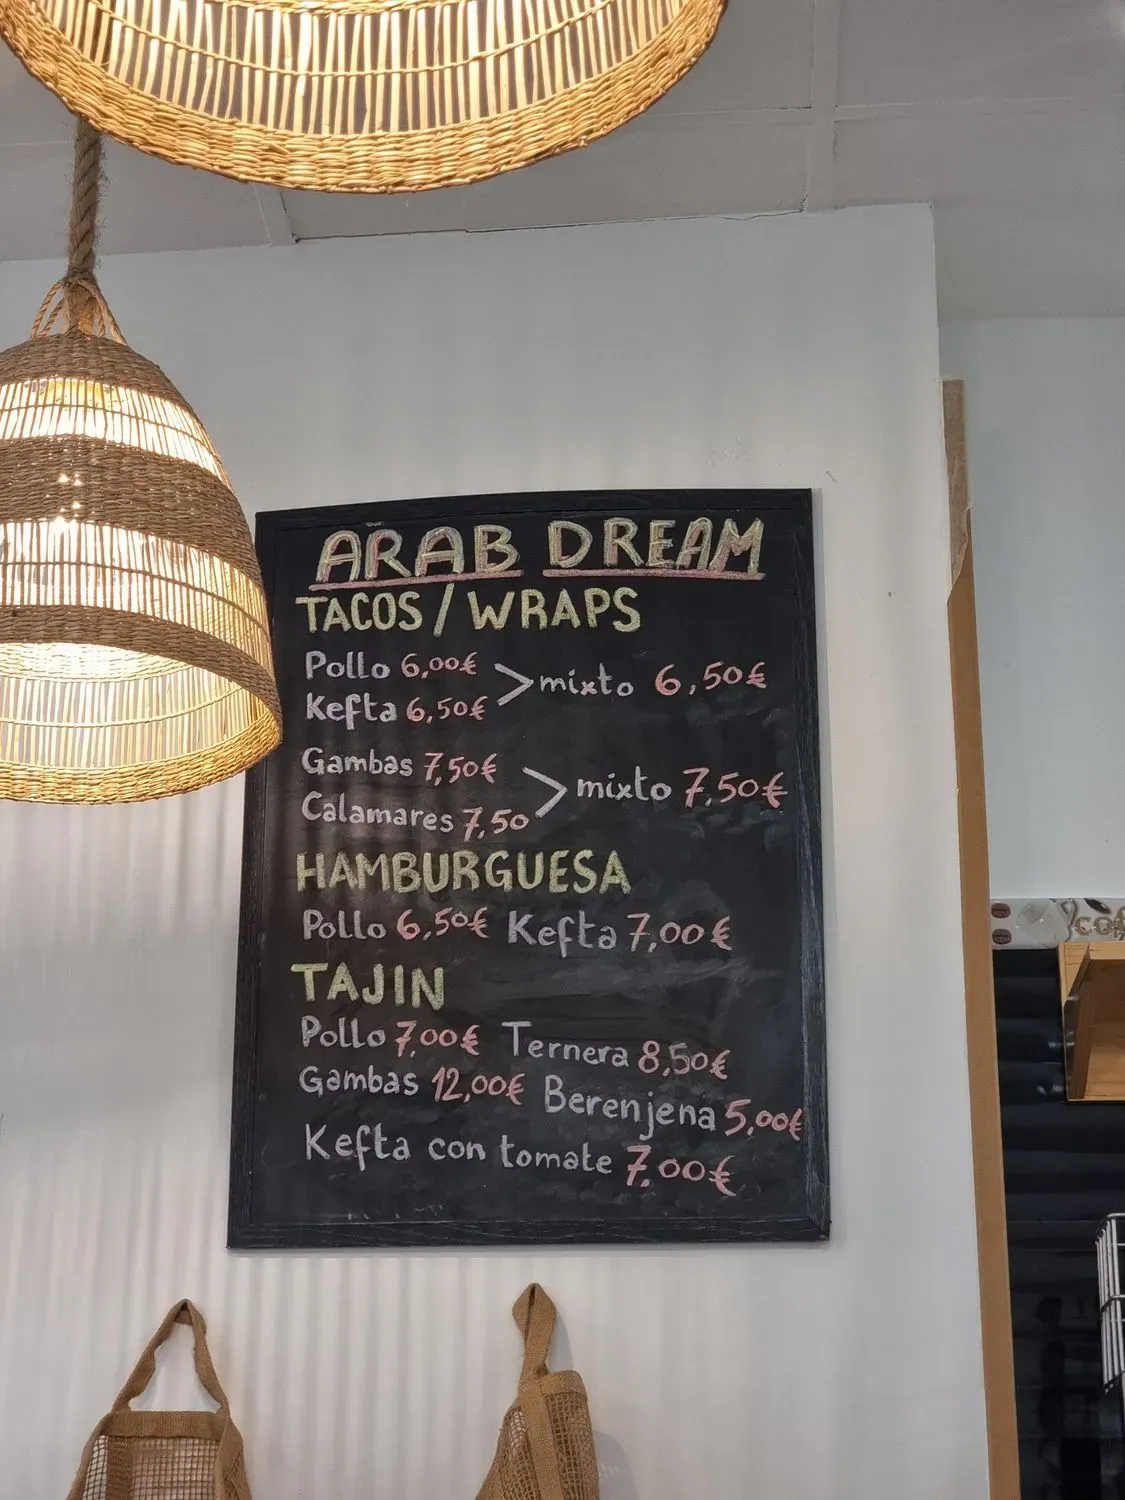 ARAB DREAM
TACOS / WRAPS
Pollo 6,00€
Kefta 6,50€
> mixto 6,50€
Gambas 7,50€
Calamares 7,50
> mixto 7,50€
HAMBURGUESA
Pollo 6,50€ Kefta 7,00€
TAJIN
Pollo 7,00€ Ternera 8,50€
Gambas 12,00€ Berenjena 5,00€
Kefta con tomate 7,00€